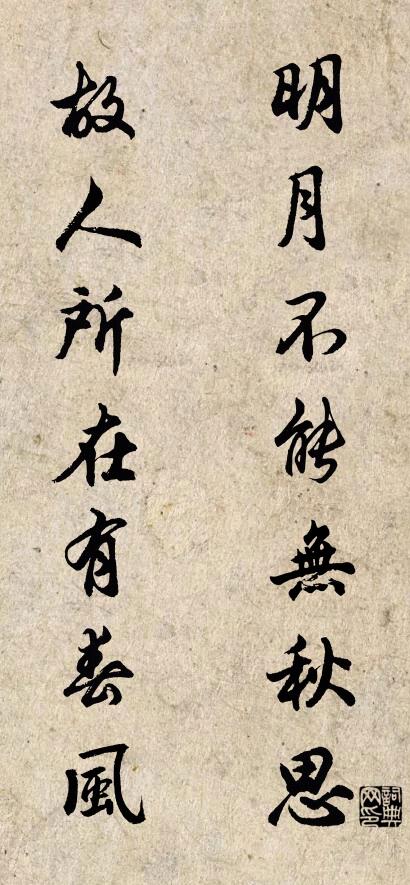 明月不能無秋思
故人所在有春風
詞典网印